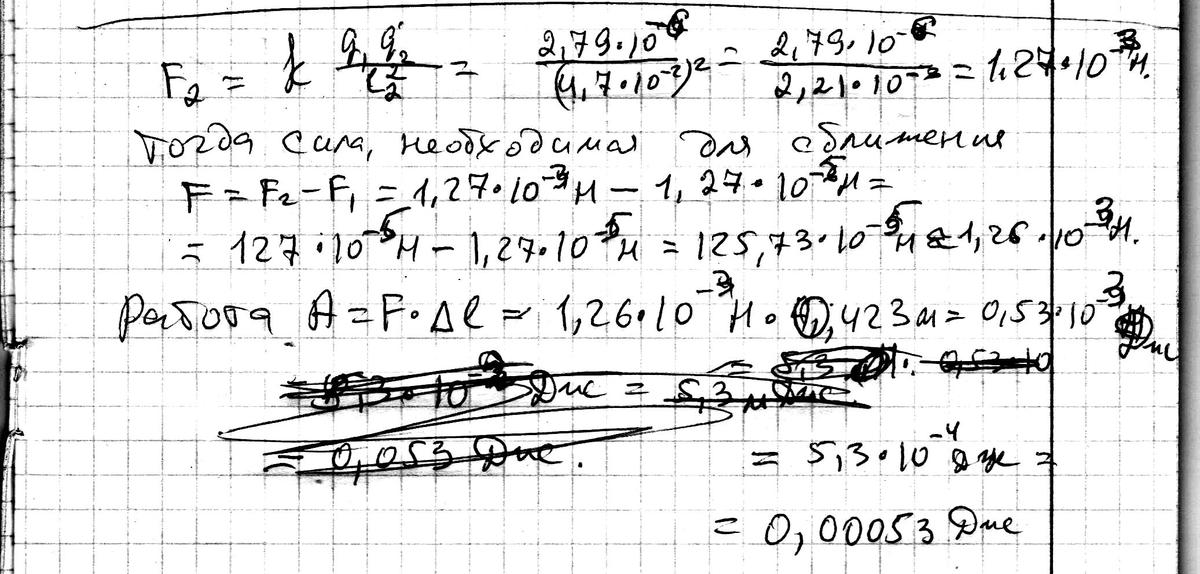 F₂ = k q₁ q₂ / l₂² = 2,79·10⁻⁶ / (4,7·10⁻²)² = 2,79·10⁻⁶ / 2,21·10⁻³ = 1,27·10⁻³ Н.
Тогда сила, необходимая для сближения
F = F₂ – F₁ = 1,27·10⁻³ Н – 1,27·10⁻⁵ Н =
= 127·10⁻⁵ Н – 1,27·10⁻⁵ Н = 125,73·10⁻⁵ Н ≈ 1,26·10⁻³ Н.
Работа A = F·Δl = 1,26·10⁻³ Н · 0,423 м = 0,53·10⁻³ Дж
= 5,3·10⁻⁴ Дж =
= 0,00053 Дж